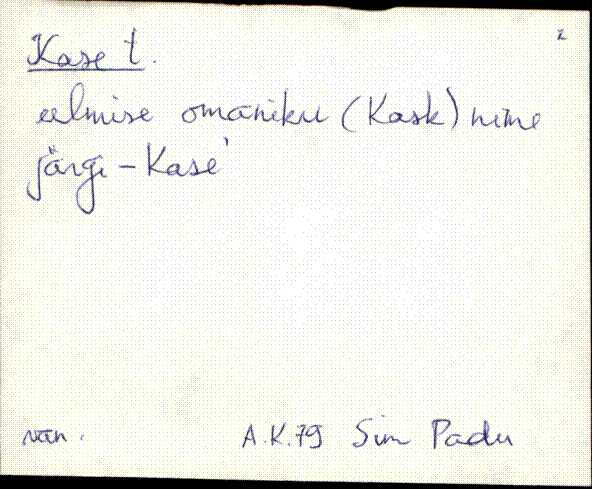 2
Kase t.
eelmise omaniku (Kask) nime
järgi – Kase'
A.K.79 Sim Padu